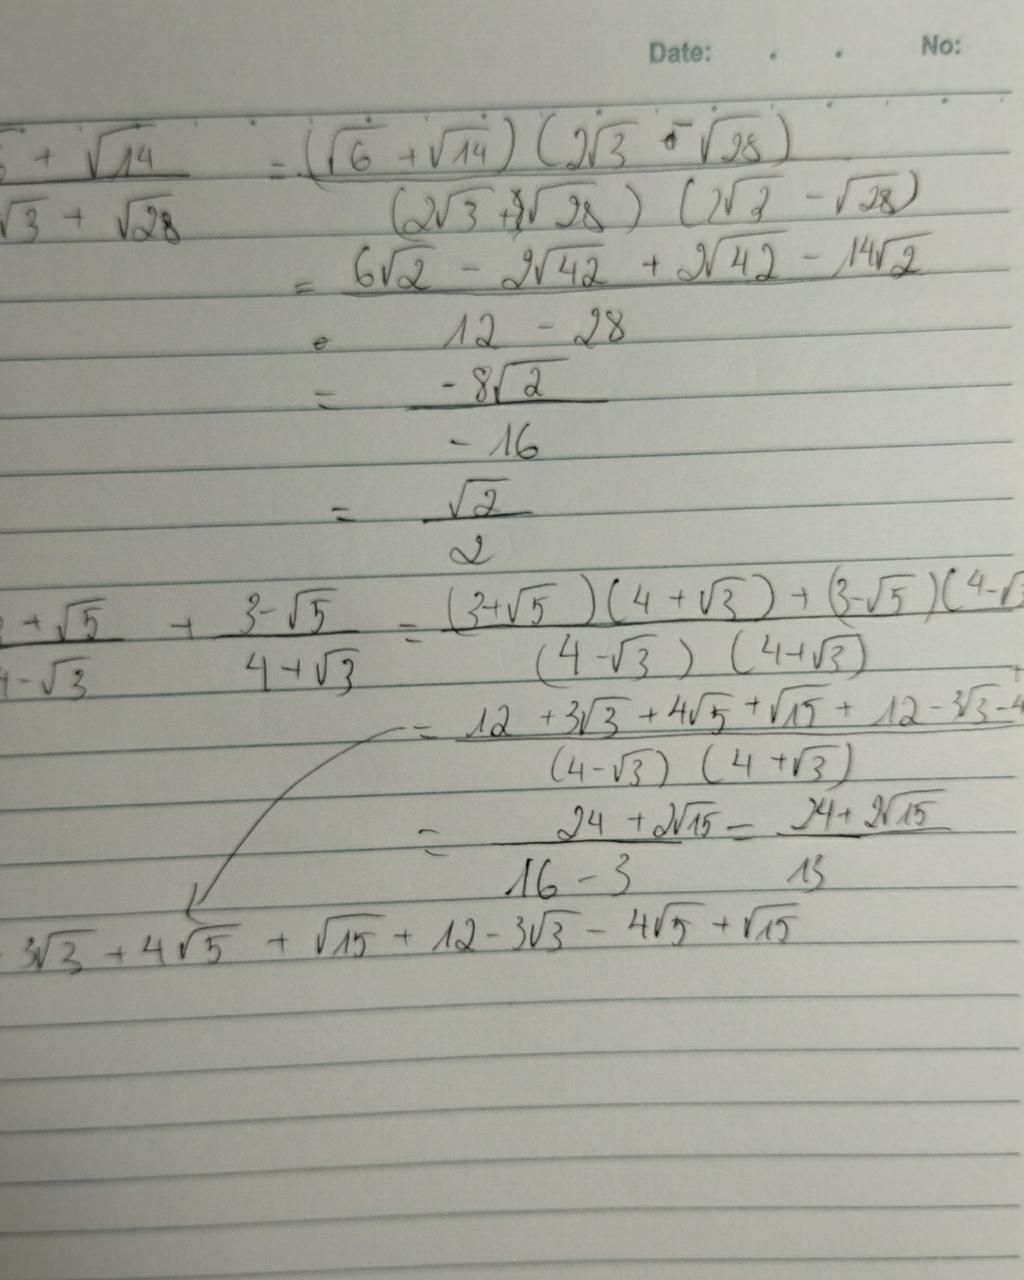 Date: . . No:
+ √14 / √3 + √28 = (√6 + √14) (2√3 - √28) / (2√3 + √28) (2√3 - √28)
= 6√2 - 2√42 + 2√42 - 14√2 / 12 - 28
= -8√2 / -16
= √2 / 2
+ √5 / 4-√3 + 3-√5 / 4+√3 = (3+√5)(4+√3) + (3-√5)(4-√3 / (4-√3) (4+√3)
= 12 + 3√3 + 4√5 + √15 + 12 - 3√3 - 4 / (4-√3) (4+√3)
= 24 + 2√15 / 16 - 3 = 24 + 2√15 / 13
3√3 + 4√5 + √15 + 12 - 3√3 - 4√5 + √15